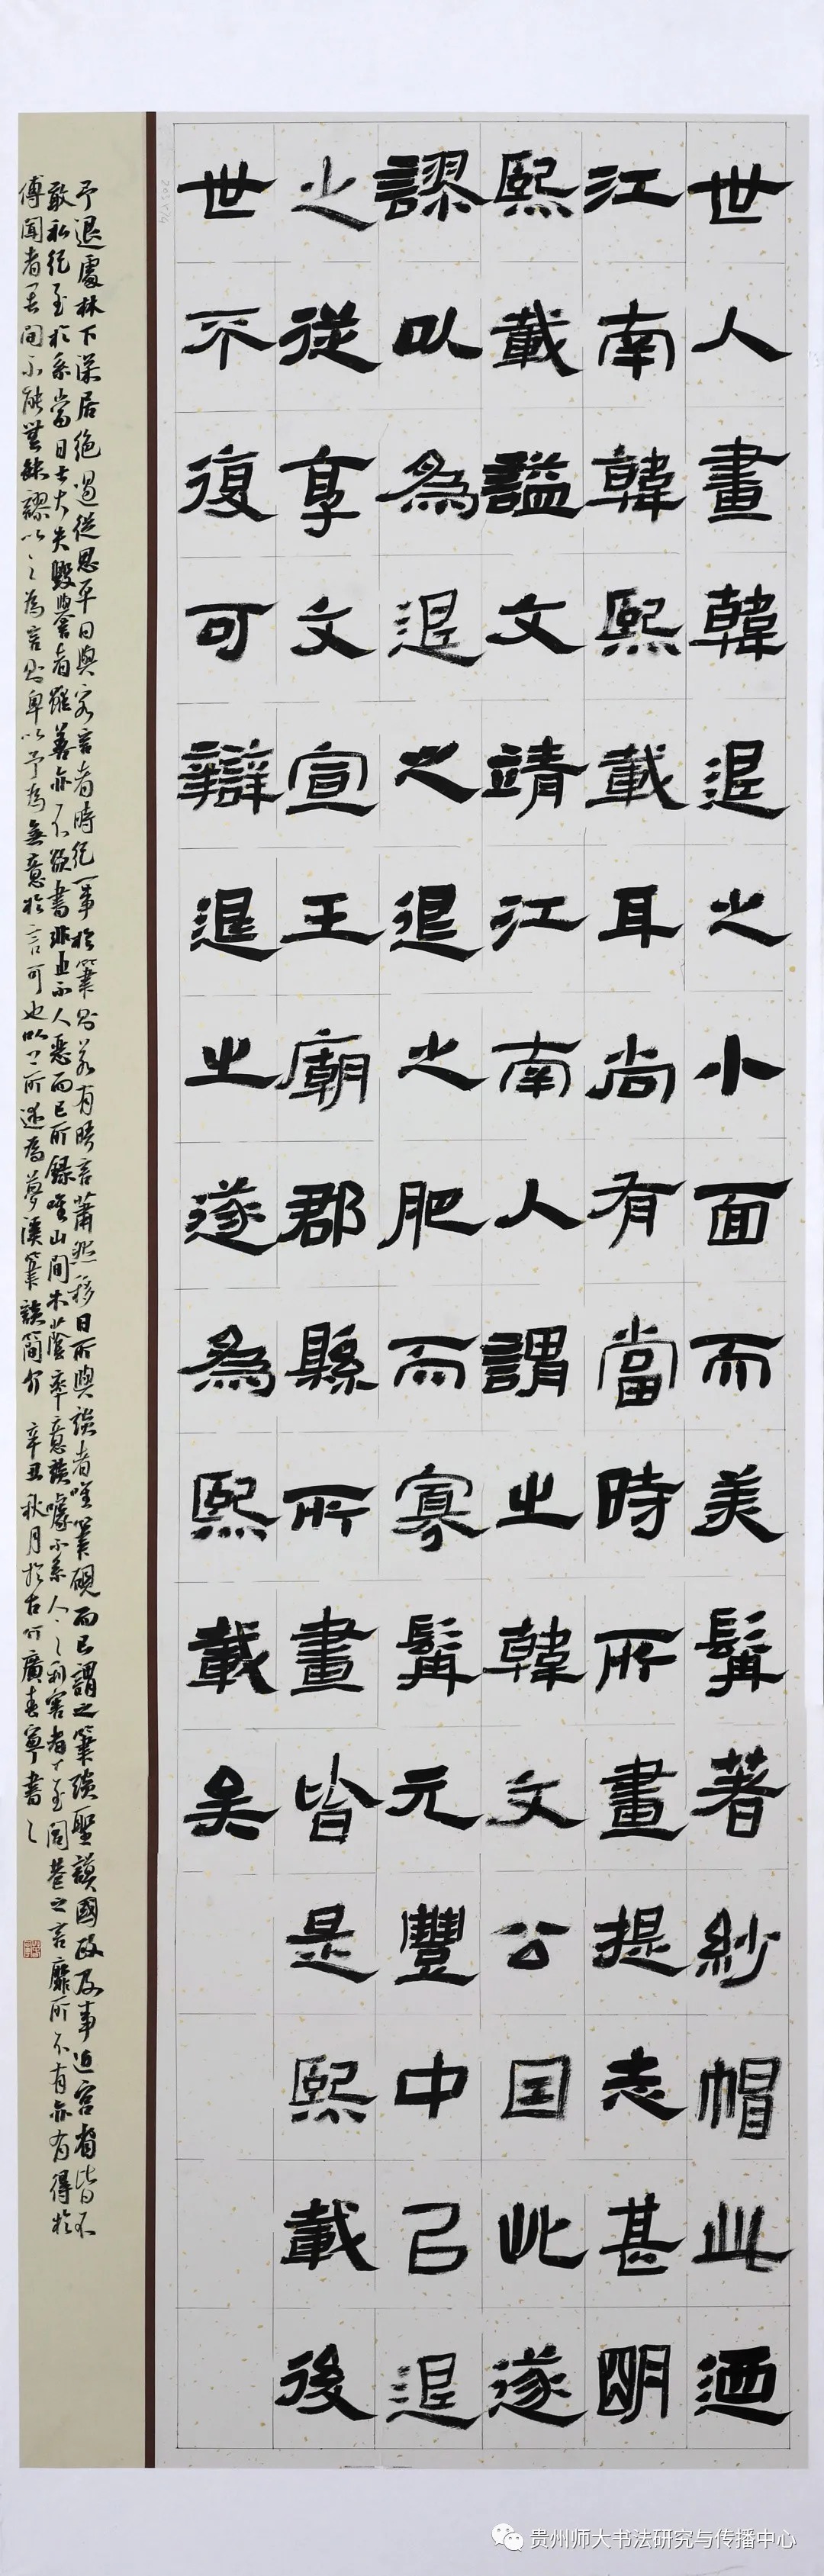 世人畫韓退之小面而美髯著紗帽此迺
江南韓熙載耳尚有當時所畫提志甚明
熙載謚文靖江南人謂之韓文公因此遂
謬以為退之退之肥而寡髯元豐中以退
之從享文宣王廟郡縣所畫皆是熙載後
世不可復辯退之遂為熙載矣
予退處林下深居絕過從思平日與客言者時紀一事於筆則若有晤言蕭然移日所與談者唯筆硯而已謂之筆談聖謨國政及事近宮省皆不
敢私紀至於系當日士大夫毀譽者雖善亦不欲書非止不人惡而已所錄唯山間木蔭率意談噱不系人之利害者下至閭巷之言靡所不有亦有得於
傳聞者其間不能無缺謬以之為言則卑以予為無意於言可也以上所述為夢溪筆談簡介 辛丑秋月於古 廣 寧書之
贵州师大书法研究与传播中心